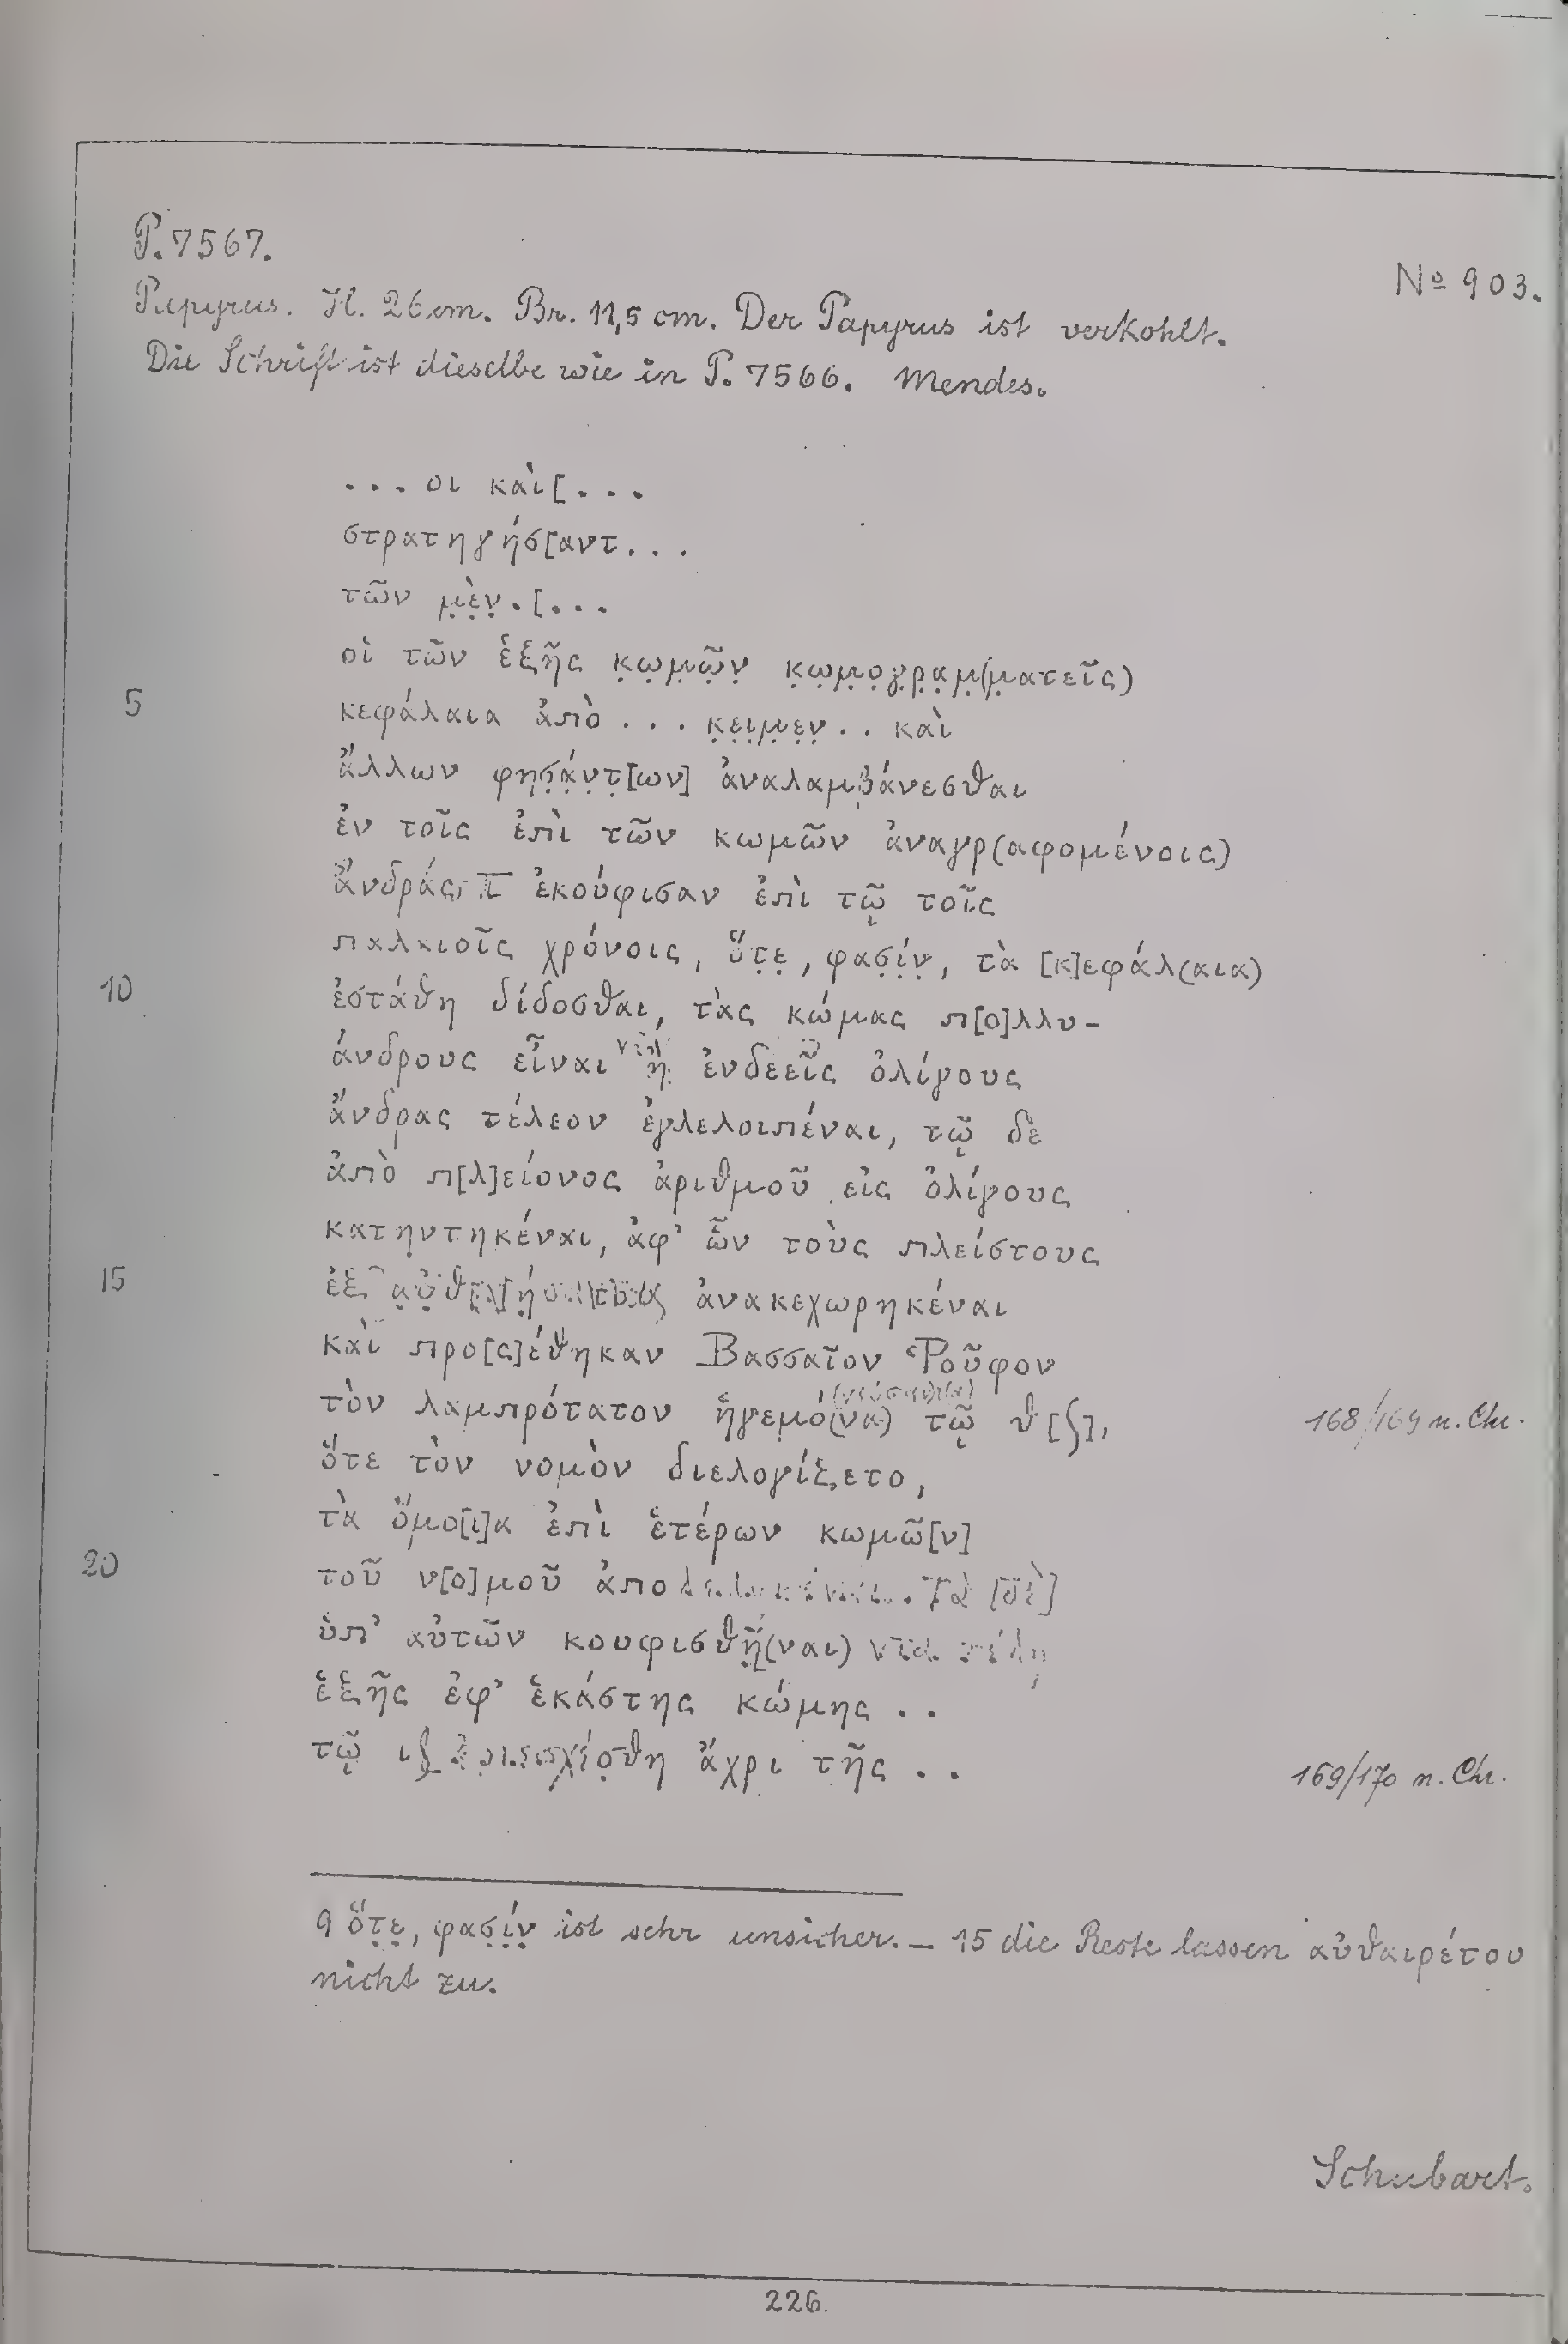 P. 7567.
Nº 903.
Papyrus. H. 26 cm. Br. 11,5 cm. Der Papyrus ist verkohlt.
Die Schrift ist dieselbe wie in P. 7566. Mendes.
. . . οι καὶ[. . .
στρατηγήσ[αντ. . .
τῶν μ̣ὲ̣ν̣ .[. . .
οἱ τῶν ἑξῆς κ̣ω̣μ̣ῶ̣ν̣ κ̣ω̣μ̣ο̣γ̣ρ̣α̣μ̣(μ̣ατεῖς)
5 κεφάλαια ἀπὸ . . . κ̣ε̣ι̣μ̣ε̣ν̣ . . καὶ
ἄλλων φησ̣ά̣ν̣τ̣[ων] ἀναλαμβάνεσθαι
ἐν τοῖς ἐπὶ τῶν κωμῶν ἀναγρ(αφομένοις)
ἄνδράσι ἐκούφισαν ἐπὶ τῷ τοῖς
παλαιοῖς χρόνοις, ὅτ̣ε̣, φασ̣ί̣ν̣, τὰ [κ]εφάλ(αια)
10 ἐστάθη δίδοσθαι, τὰς κώμας π[ο]λλυ-
άνδρους εἶναι ἢ̣ ἐνδεεῖς ὀλίγους
ἄνδρας τέλεον ἐγλελοιπέναι, τῷ δὲ
ἀπὸ π[λ]είονος ἀριθμοῦ εἰς ὀλίγους
κατηντηκέναι, ἀφ' ὧν τοὺς πλείστους
15 ἐξ ἀνακεχωρηκέναι
καὶ προ[ς]έθηκαν Βασσαῖον Ῥοῦφον
τὸν λαμπρότατον ἡγεμό(να) τῷ θ[∫], 168/169 n. Chr.
ὅτε τὸν νομὸν διελογίζετο,
τὰ ὅμο[ι]α ἐπὶ ἑτέρων κωμῶ[ν]
20 τοῦ ν[ο]μοῦ Τὰ [δὲ]
ὑπ' αὐτῶν κουφισθῆ̣(ναι)
ἑξῆς ἐφ' ἑκάστης κώμης . .
τῷ ι∫ ἄχρι τῆς . . 169/170 n. Chr.
9 ὅτ̣ε̣, φασ̣ί̣ν̣ ist sehr unsicher. — 15 die Reste lassen αὐθαιρέτου
nicht zu.
Schubart.
226.